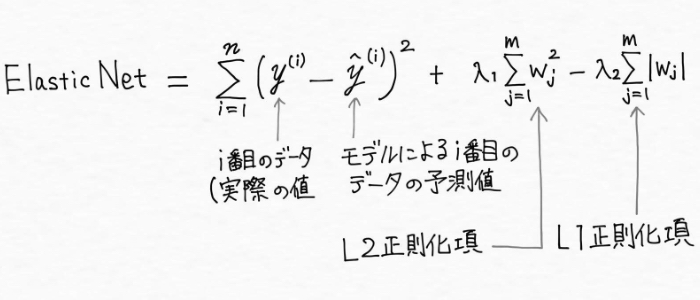 Elastic Net = \sum_{i=1}^{n} (y^{(i)} - \hat{y}^{(i)})^2 + λ_1 \sum_{j=1}^{m} w_j^2 - λ_2 \sum_{j=1}^{m} |w_j|
i番目のデータ モデルによるi番目の
(実際の値 データの予測値
L2正則化項 L1正則化項